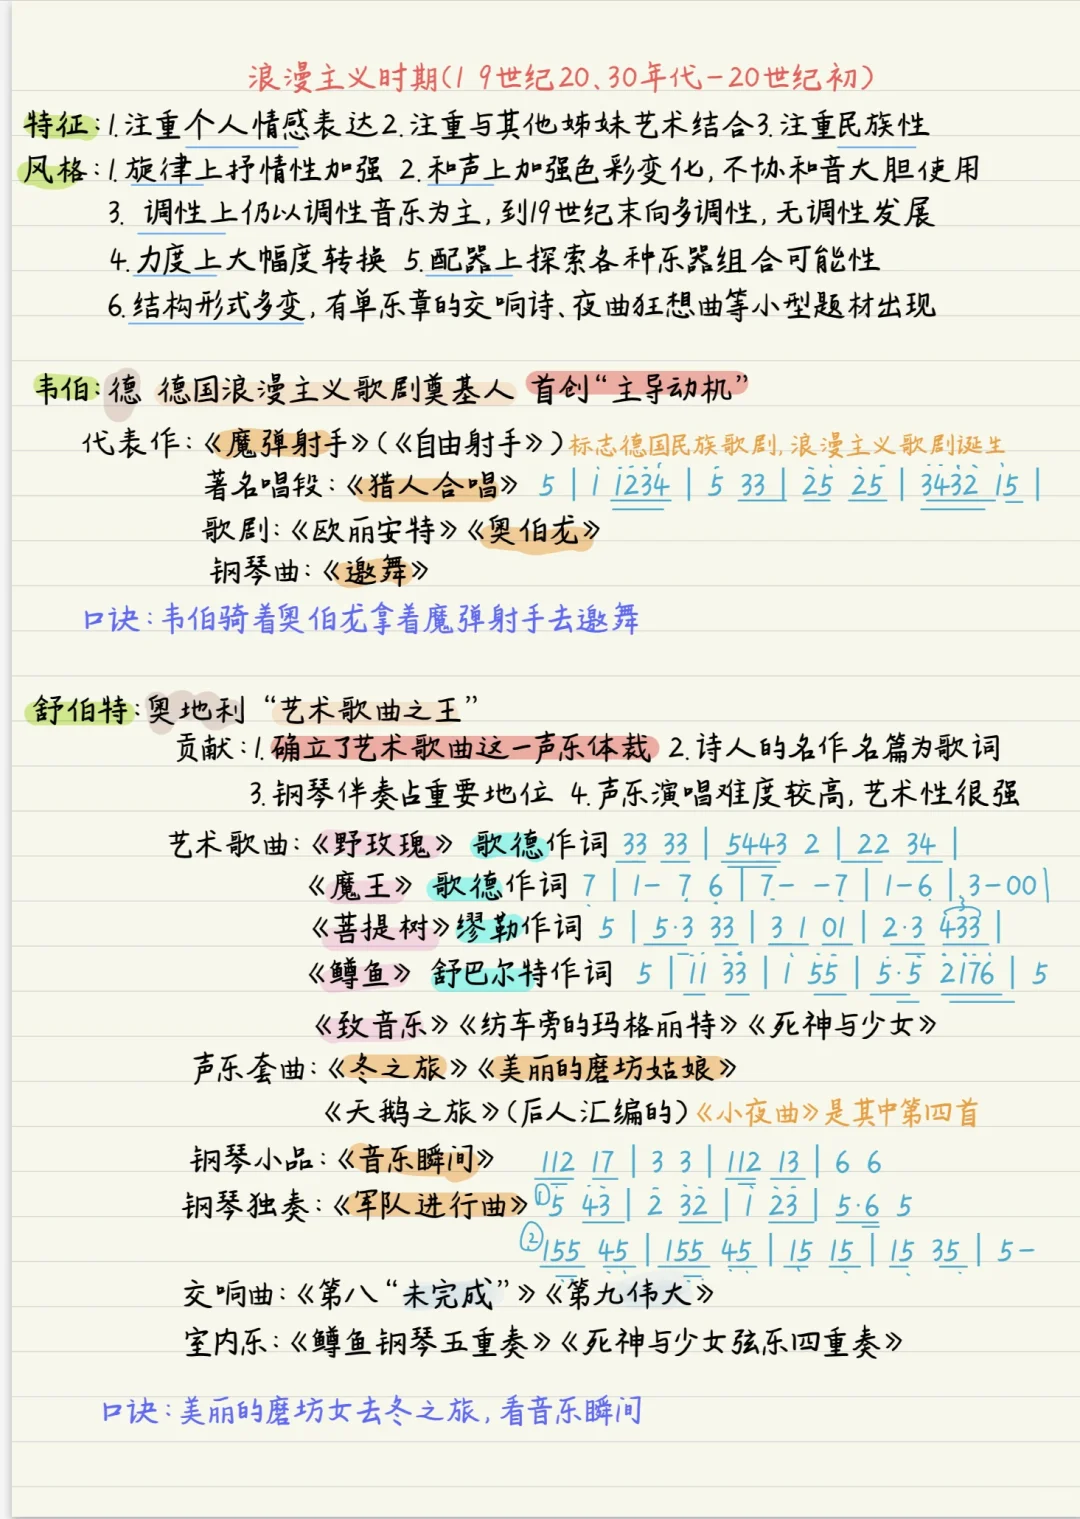 浪漫主义时期(19世纪20、30年代-20世纪初)
特征:1.注重个人情感表达2.注重与其他姊妹艺术结合3.注重民族性
风格:1.旋律上抒情性加强 2.和声上加强色彩变化,不协和音大胆使用
3.调性上仍以调性音乐为主,到19世纪末向多调性,无调性发展
4.力度上大幅度转换 5.配器上探索各种乐器组合可能性
6.结构形式多变,有单乐章的交响诗、夜曲狂想曲等小型题材出现
韦伯:德 德国浪漫主义歌剧奠基人 首创“主导动机”
代表作:《魔弹射手》(《自由射手》)标志德国民族歌剧,浪漫主义歌剧诞生
著名唱段:《猎人合唱》 5 | 1 1234 | 5 33 | 25 25 | 3432 15 |
歌剧:《欧丽安特》《奥伯龙》
钢琴曲:《邀舞》
口诀:韦伯骑着奥伯龙拿着魔弹射手去邀舞
舒伯特:奥地利 “艺术歌曲之王”
贡献:1.确立了艺术歌曲这一声乐体裁 2.诗人的名作名篇为歌词
3.钢琴伴奏占重要地位 4.声乐演唱难度较高,艺术性很强
艺术歌曲:《野玫瑰》 歌德作词 33 33 | 5443 2 | 22 34 |
《魔王》 歌德作词 7 | 1- 7 6 | 7- -7 | 1-6 | 3-00|
《菩提树》缪勒作词 5 | 5·3 33 | 3 1 01 | 2·3 433 |
《鳟鱼》 舒巴尔特作词 5 | 11 33 | 1 55 | 5·5 2176 | 5
《致音乐》《纺车旁的玛格丽特》《死神与少女》
声乐套曲:《冬之旅》《美丽的磨坊姑娘》
《天鹅之旅》(后人汇编的)《小夜曲》是其中第四首
钢琴小品:《音乐瞬间》 112 17 | 3 3 | 112 13 | 6 6
钢琴独奏:《军队进行曲》 ①5 43 | 2 32 | 1 23 | 5·6 5
②155 45 | 155 45 | 15 15 | 15 35 | 5-
交响曲:《第八“未完成”》《第九伟大》
室内乐:《鳟鱼钢琴五重奏》《死神与少女弦乐四重奏》
口诀:美丽的磨坊女去冬之旅,看音乐瞬间